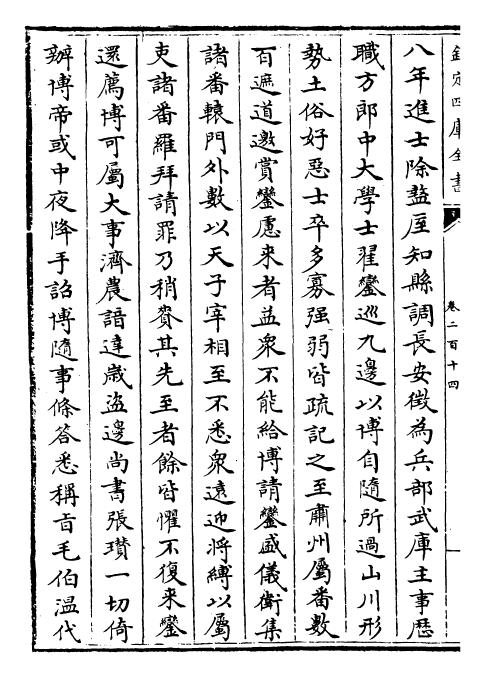 欽定四庫全書
卷二百十四
八年進士除盩厔知縣調長安徵為兵部武庫主事歷
職方郎中大學士翟鑾巡九邊以博自隨所過山川形
勢土俗好惡士卒多寡强弱皆疏記之至肅州屬番數
百遮道邀賞鑾慮来者益衆不能給博請鑾盛儀衛集
諸番轅門外數以天子宰相至不悉衆遠迎將縛以屬
吏諸番羅拜請罪乃稍賚其先至者餘皆懼不復来鑾
還薦博可屬大事濟農諳達歲盜邊尚書張瓚一切倚
辦博帝或中夜降手詔博隨事條答悉稱㫖毛伯温代